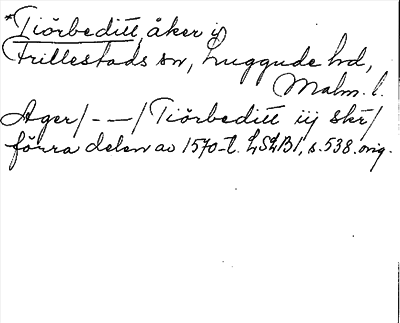 *Tiörbeditt, åker i
Frillestads sn, Luggude hd,
Malm. l.
Ager/ - - /Tiörbeditt iij skr/
förra delen av 1570-t. LSLB1, s. 538. orig.